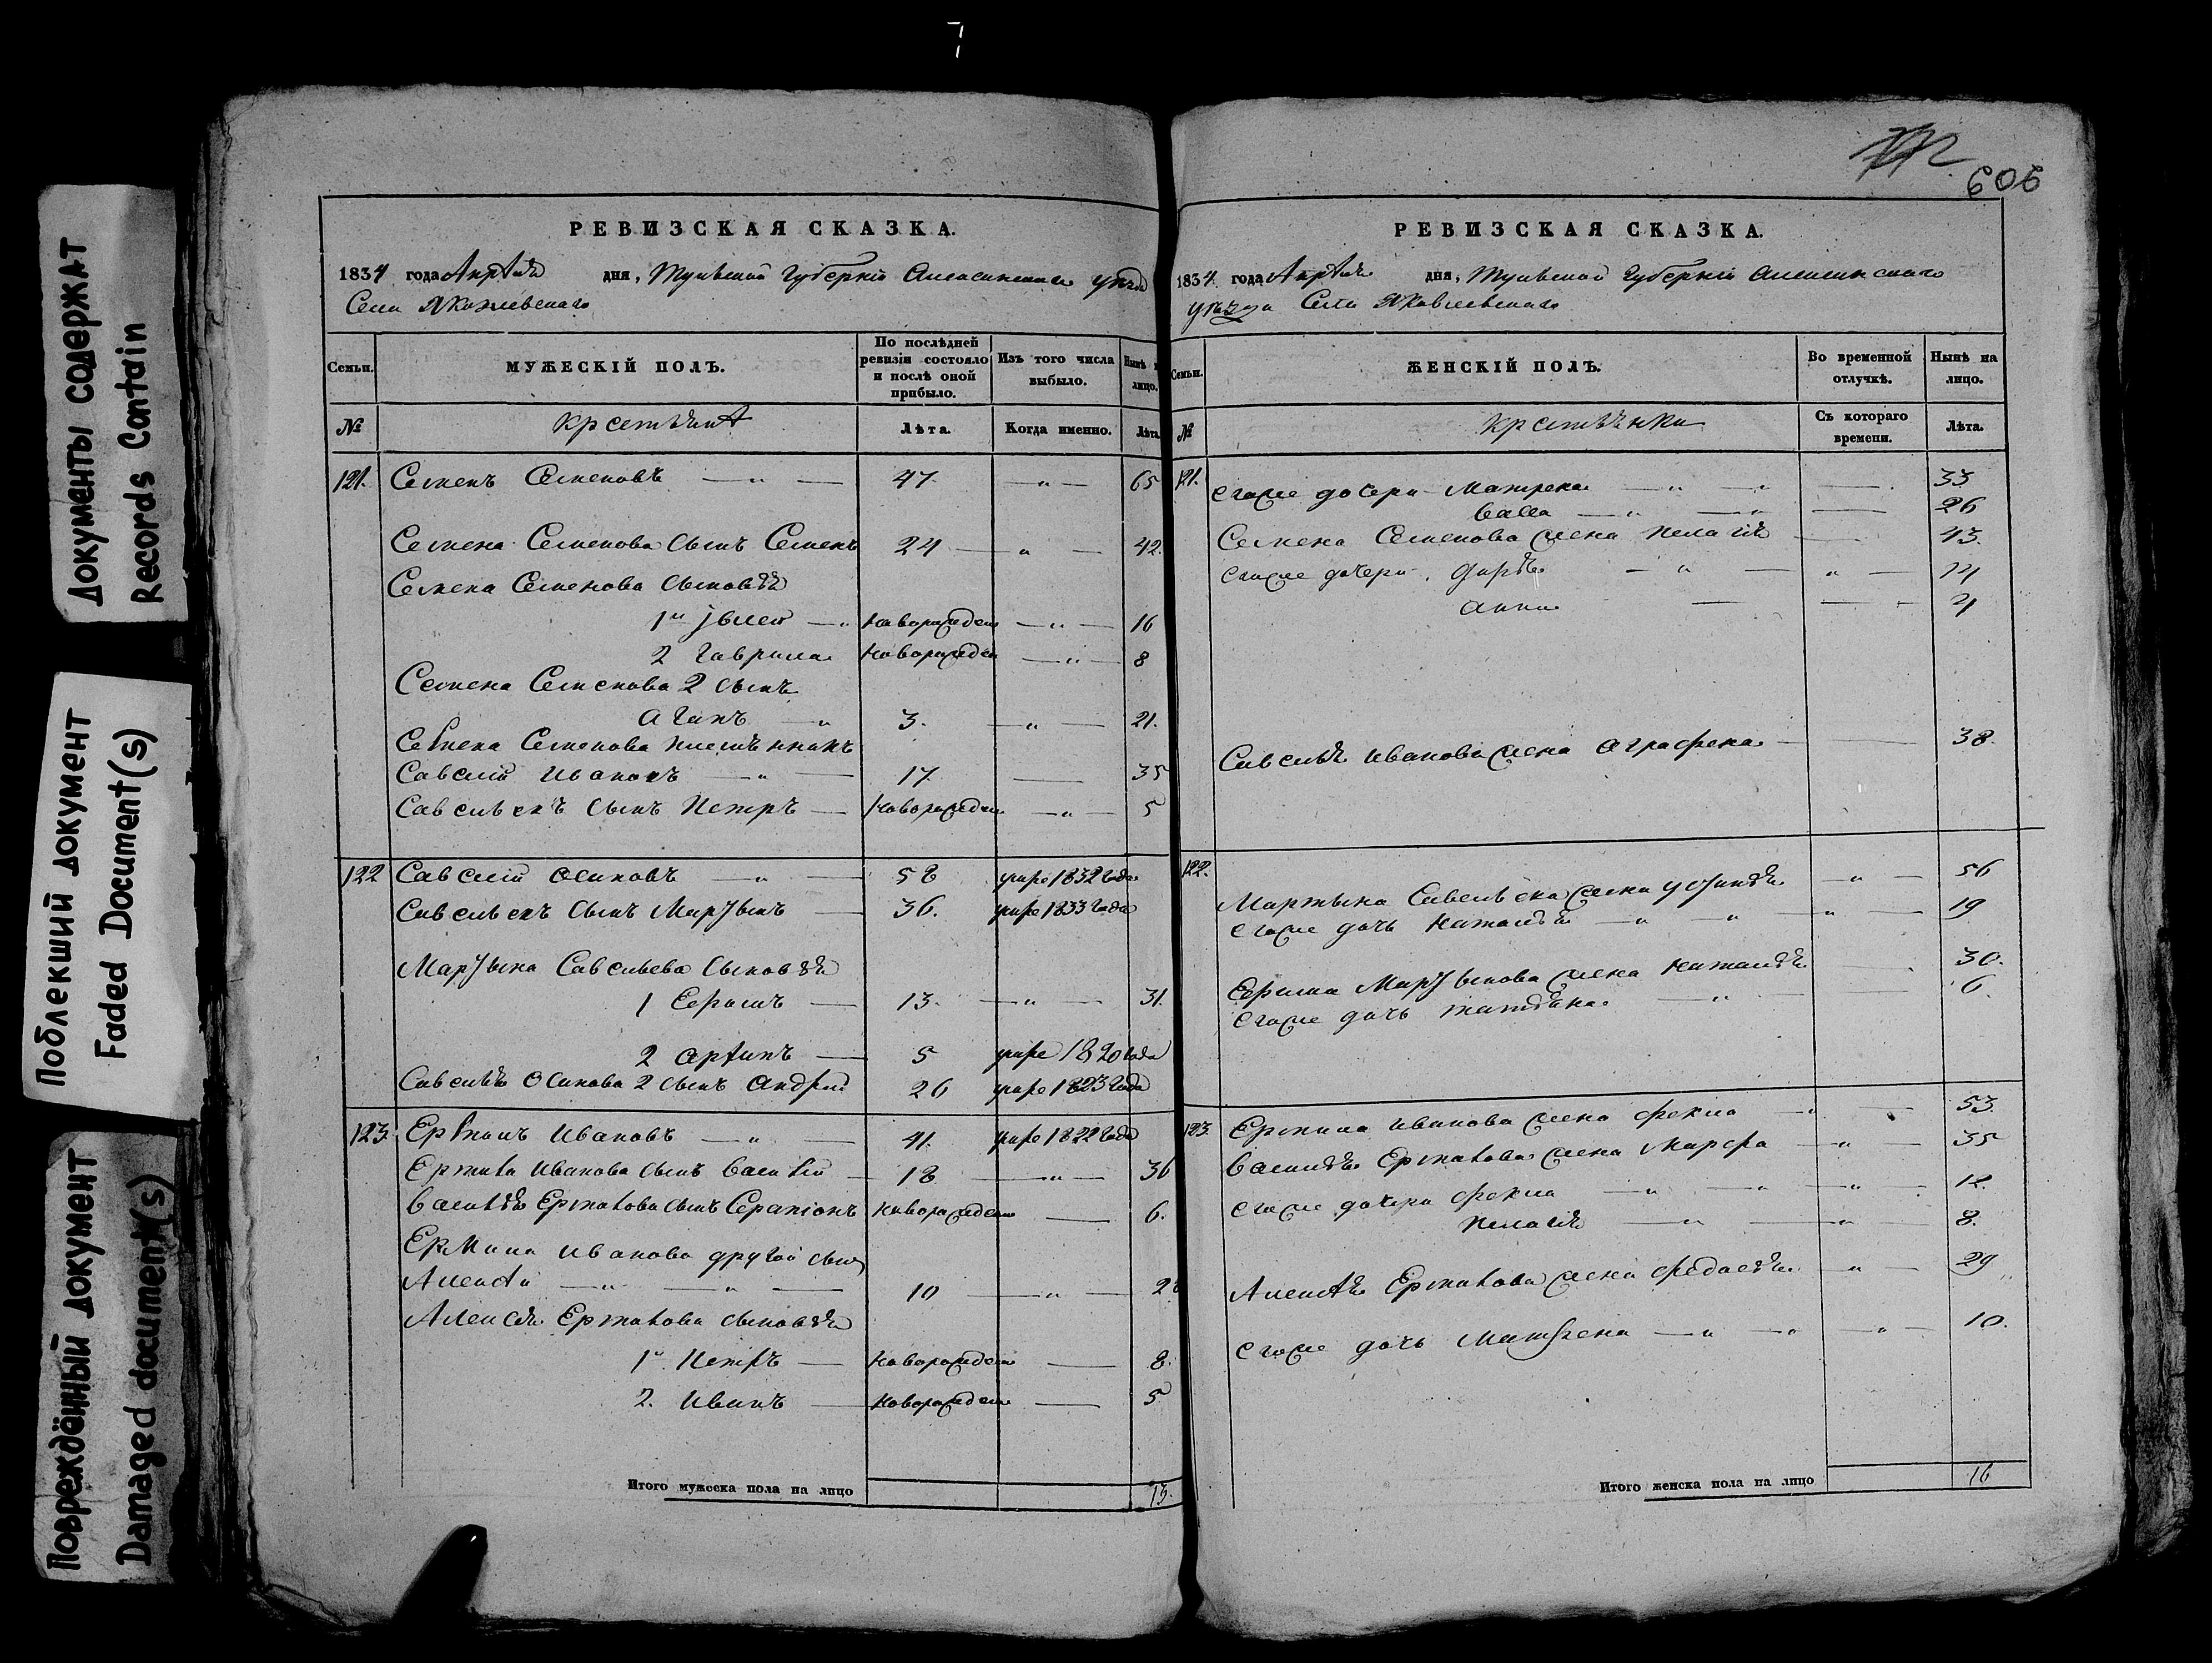 7
Документы содержат
Records Contain
Поблекший документ
Faded Document(s)
Повреждённый документ
Damaged document(s)
РЕВИЗСКАЯ СКАЗКА.
1834 года Апрѣля дня, Тульской Губернiи Алексинскаго уѣзда
Села Яковлевскаго
Семьи.
МУЖЕСКІЙ ПОЛЪ.
По послѣдней
ревизіи состояло
и послѣ оной
прибыло.
Изъ того числа
выбыло.
Нынѣ н
лицо.
№
Лѣта.
Когда именно.
Лѣта.
121. Семенъ Семеновъ — „ — 47. — „ — 65
Семена Семенова сынъ Семенъ 24 — „ — 42.
Семена Семенова сыновья
1й новорожден — „ — 16
2 Гаврила новорожден — „ — 8
Семена Семенова 2 сынъ
Агапъ — „ 3. — „ — 21.
Семена Семенова племянникъ
Савелій Ивановъ — „ — 17. — 35
Савельевъ сынъ Петръ — новорожден — „ — 5
122 Савелій Осиповъ — „ — 58 умре 1832 года
Савельевъ сынъ Мартынъ — 36. умре 1833 года
Мартына Савельева сыновья
1 Герасимъ — 13. — „ — 31.
2 — 5 умре 1820 года
Савелья Осипова 2 сынъ Андрей 26 умре 1823 года
123. Ермилъ Ивановъ — „ — 41. умре 1822 года
Ермила Иванова сынъ Василiй — 18 — „ — 36
Василья Ермилова сынъ Серапіонъ новорожден — 6.
Ермила Иванова другой сынъ
Алексѣй — „ — „ — 10 — „ — 2
Алексѣя Ермилова сыновья
1й Петръ — новорожден — 8.
2. Иванъ — новорожден — 5
Итого мужеска пола на лицо 13.
606
РЕВИЗСКАЯ СКАЗКА.
1834 года Апрѣля дня, Тульской Губернiи Алексинскаго
уѣзда Села Яковлевскаго
Семьи.
ЖЕНСКІЙ ПОЛЪ.
Во временной
отлучкѣ.
Нынѣ на
лицо.
№
Съ котораго
времени.
Лѣта.
121. его же дочери Матрена — „ — „ — 33
Васса — „ — „ — 26
Семена Семенова жена Пелагія — 43.
его же дочери Дарья — „ — „ — 14
Анна — — 4
Савелья Иванова жена Аграфена — 38.
122. Мартына Савельева жена Устинья — „ — 56
его же дочь Наталья — „ „ — „ — 19
Герасима Мартынова жена Наталья — 30.
его же дочь Татьяна — „ — 6.
123. Ермила Иванова жена Фекла — „ — 53.
Василья Ермилова жена Марфа — „ — 35
его же дочери Фекла — „ — „ — „ — 12.
Пелагія — „ — „ — 8.
Алексѣя Ермилова жена Федосья — „ — 29
его же дочь Матрена — „ — „ — „ — 10.
Итого женска пола на лицо 16